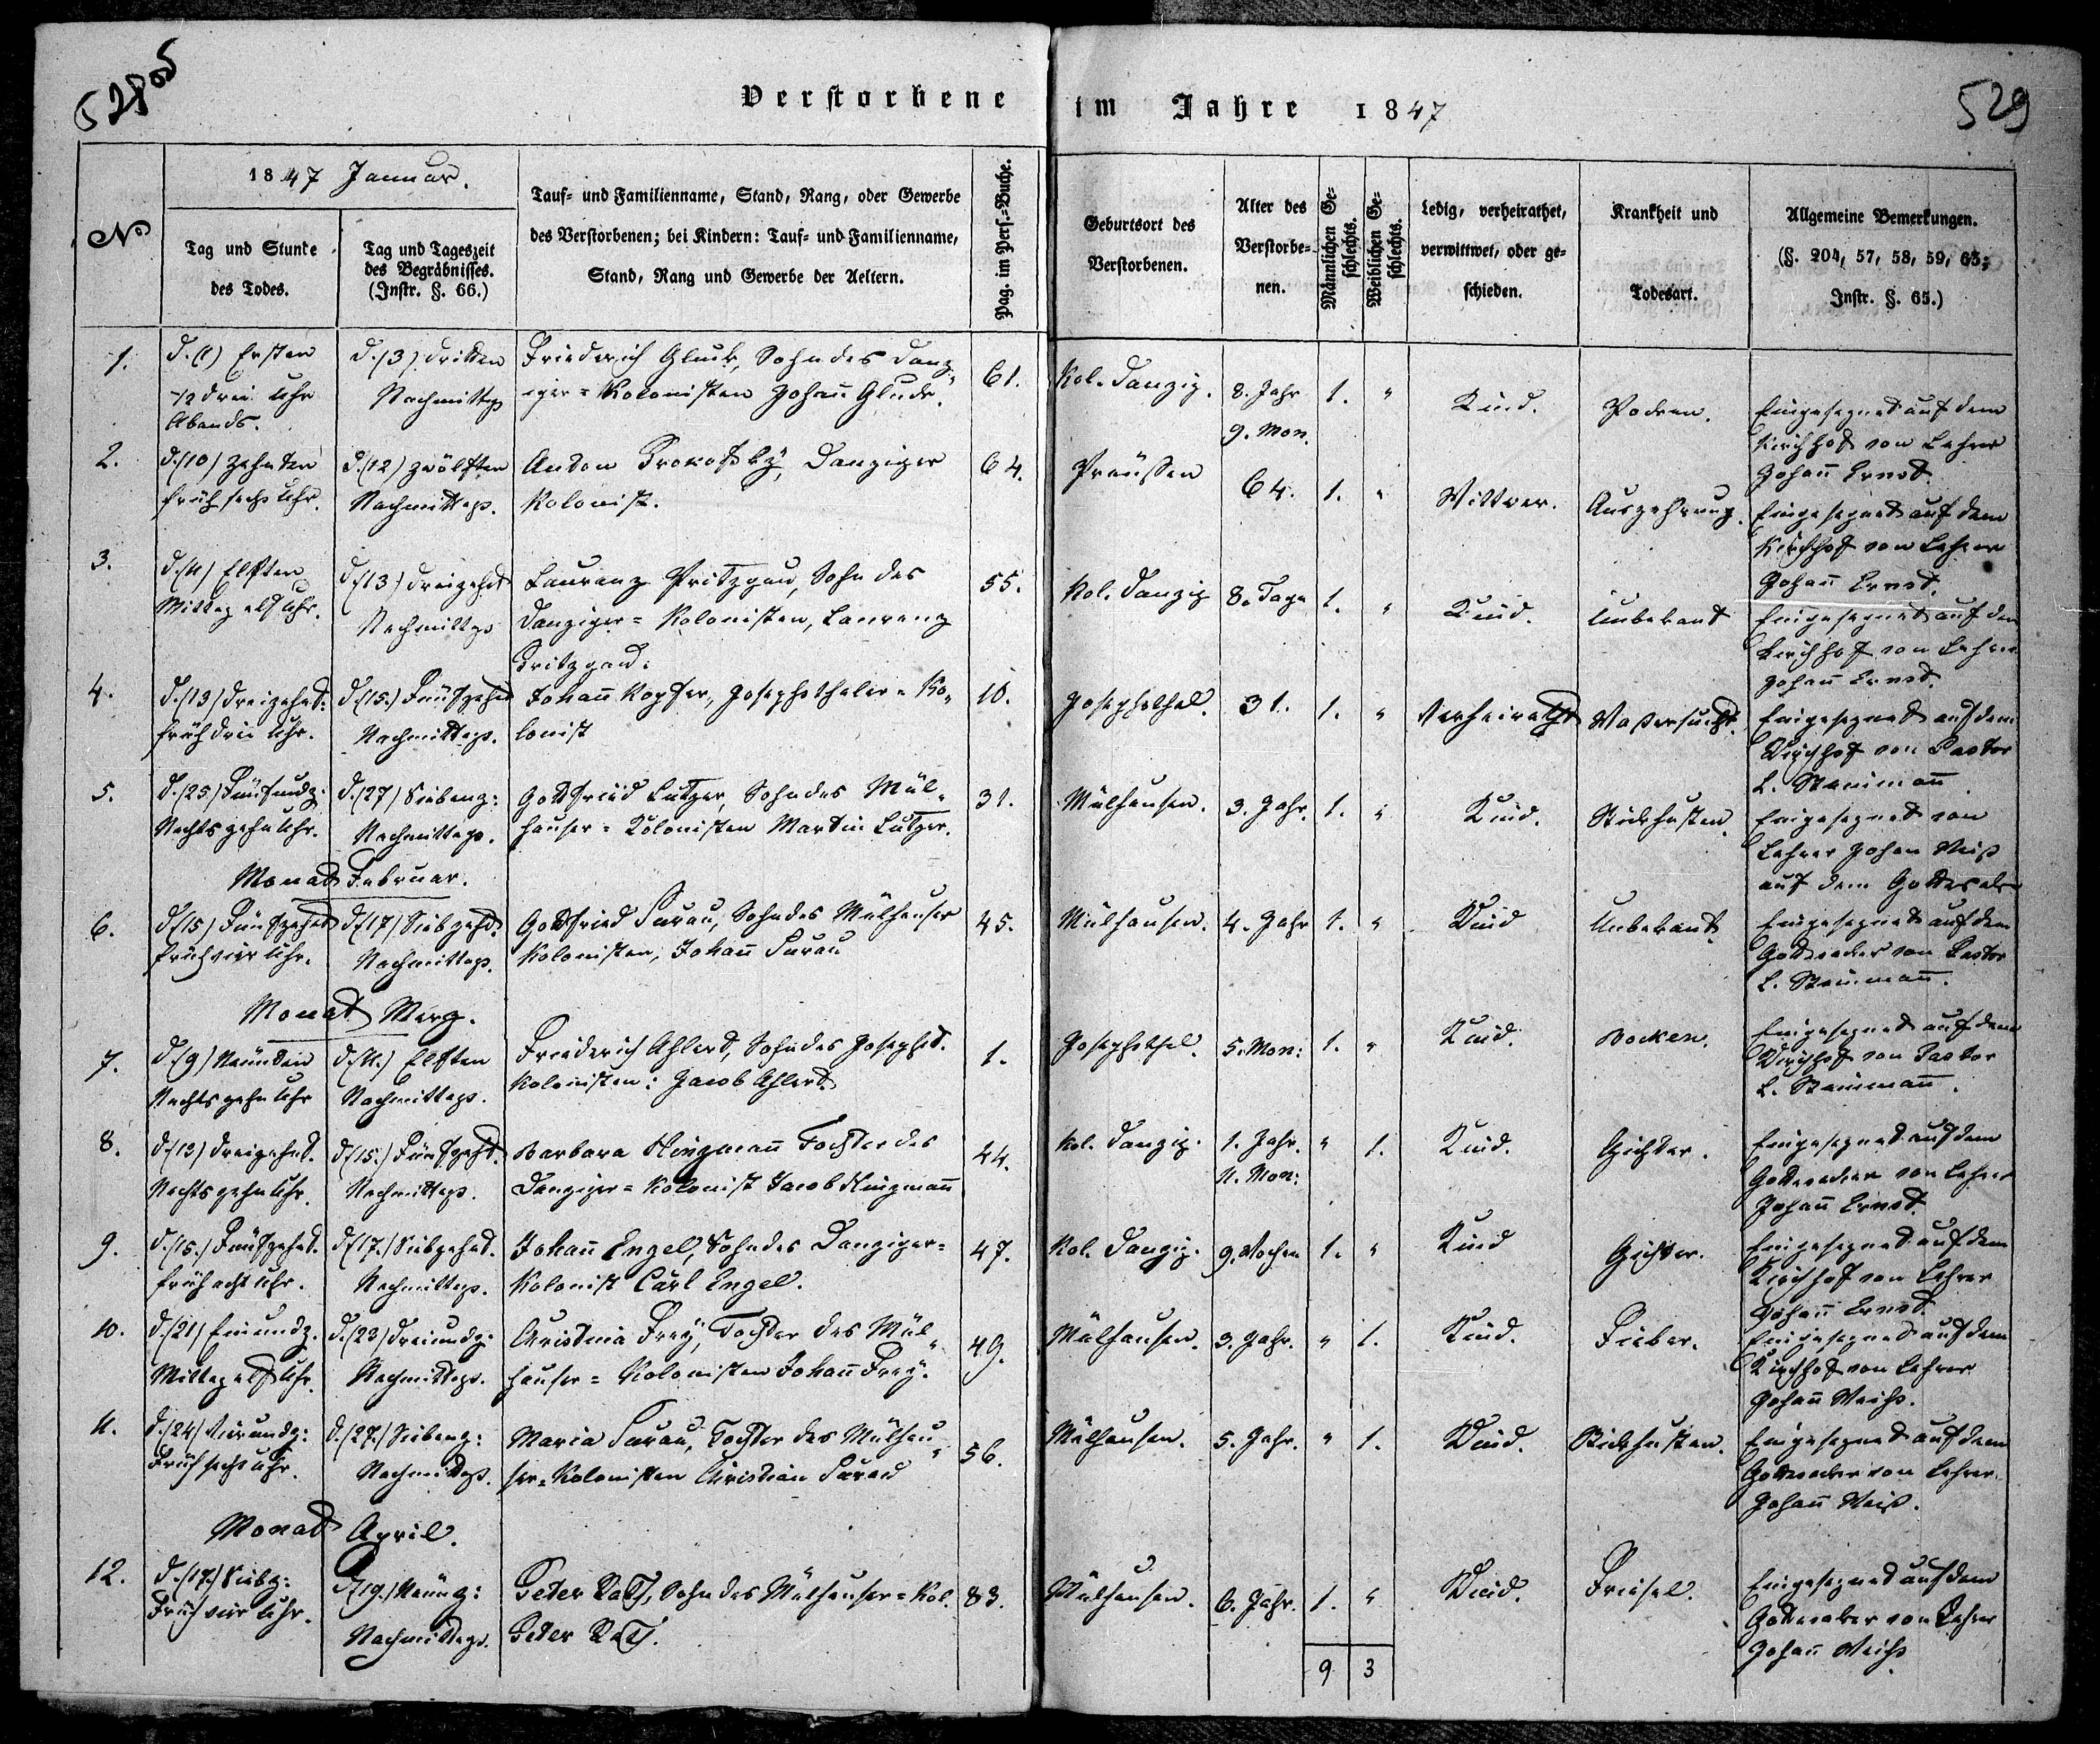 528
529
Verstorbene im Jahre 1847
1847 Januar.
No
Tag und Stunde
des Todes.
Tag und Tageszeit
des Begräbnisses.
(Instr. §. 66.)
Tauf- und Familienname, Stand, Rang, oder Gewerbe
des Verstorbenen; bei Kindern: Tauf- und Familienname,
Stand, Rang und Gewerbe der Aeltern.
Pag. im Pers.-Buche.
Geburtsort des
Verstorbenen.
Alter des
Verstorbe-
nen.
Männlichen Ge-
schlechts.
Weiblichen Ge-
schlechts.
Ledig, verheirathet,
verwittwet, oder ge-
schieden.
Krankheit und
Todesart.
Allgemeine Bemerkungen.
(§. 204, 57, 58, 59, 63;
Instr. §. 65.)
1.
d. (1) Ersten
1/2 drei Uhr
Abends.
d. (3) dritten
Nachmittgs
Friederich Gluck, Sohn des Danz-
iger = Kolonisten Johann Gluck.
61.
Kol. Danzig.
8. Jahr
9. Mon.
1. "
Kind.
Pocken.
Eingesegnet auf dem
Kirchhof von Lehrer
Johann Ernst.
2.
d. (10) Zehnten
früh sechs Uhr.
d. (12) zwölften
Nachmittags.
Anton Prokofsky, Danziger
Kolonist.
64.
Preüssen
64. 1. "
Wittwer.
Auszehrung.
Eingesegnet auf dem
Kirchhof von Lehrer
Johann Ernst.
3.
d. (11) Elften
Mittag elf Uhr.
d. (13) dreizehnt
Nachmittgs
Laurenz Pritzgau, Sohn des
Danziger = Kolonisten, Laurenz
Pritzgau.
55.
Kol. Danzig
8. Tage
1. "
Kind.
Unbekant
Eingesegnet auf dem
Kirchhof von Lehrer
Johann Ernst.
4.
d. (13) dreizehnt:
früh drei Uhr.
d. (15.) Fünfzehnt
Nachmittags.
Johann Kopfer, Josephsthaler = Ko-
lonist
10.
Josephsthal.
31. 1. "
Verheirathet
Waßersucht.
Eingesegnet auf dem
Kirchhof von Pastor
L. Steinmann
5.
d. (25) Fünfundz:
Nachts zehn Uhr.
d. (27) Siebenz:
Nachmittags.
Gottfried Lutzer, Sohn des Mül-
hauser = Kolonisten Martin Lutzer.
31.
Mülhausen.
3. Jahr.
1. "
Kind.
Stickhusten.
Eingesegnet von
Lehrer Johan Weiß
auf dem
Monat Februar.
6.
d. (15) Fünfzehnt
früh vier Uhr.
d. (17) Siebzehnt.
Nachmittags.
Gottfried Surau, Sohn des Mülhauser
Kolonisten, Johann Surau
45.
Mülhausen.
4. Jahr
1. "
Kind
Unbekant.
Eingesegnet auf dem
Gottesacker von Pastor
L. Steinmann.
Monat Merz.
7.
d. (9) Neünten
Nachts zehn Uhr
d. (11.) Elften
Nachmittags.
Friederich Ahlert, Sohn des Josephst.
Kolonisten: Jacob Ahlert.
1.
Josephsthal.
5. Mon:
1. "
Kind.
Pocken.
Eingesegnet auf dem
Kirchhof von Pastor
L. Steinmann.
8.
d. (13) dreizehnt.
Nachts zehn Uhr.
d. (15.) Fünfzeht.
Nachmittags.
Barbara Klingmann Tochter des
Danziger = Kolonist Jacob Klingmann
44.
Kol. Danzig.
1. Jahr.
11. Mon:
" 1.
Kind.
Gichter.
Eingesegnet auf dem
Gottesacker von Lehrer
Johann Ernst.
9.
d. (15.) Fünfzehnt.
früh acht Uhr.
d. (17.) Siebzehnt.
Nachmittags.
Johann Engel, Sohn des Danziger=
Kolonist Carl Engel.
47.
Kol. Danzig.
9. Wochen
1. "
Kind
Gichter.
Eingesegnet auf dem
Kirchhof von Lehrer
Johann Ernst.
10.
d. (21) Einundz.
Mittag elf Uhr.
d. (23) dreiundz:
Nachmittags.
Christina Frey, Tochter des Mül-
hauser = Kolonisten Johann Frey.
49.
Mülhausen.
3. Jahr.
" 1.
Kind.
Fieber.
Eingesegnet auf dem
Kirchhof von Lehrer
Johann Weihs.
11.
d. (24) Vierundz:
Früh sechs Uhr.
d. (27.) Siebenz:
Nachmittags.
Maria Surau, Tochter des Mülhau-
ser = Kolonisten Christian Surau
56.
Mülhausen.
5. Jahr.
" 1.
Kind.
Stickhusten.
Eingesegnet auf dem
Gottesacker von Lehrer
Johann Weiß.
Monat April.
12.
d. (17.) Siebz:
Früh vier Uhr.
d. (19.) Neünz:
Nachmittags.
Peter Rath, Sohn des Mülhauser = Kol.
Peter Rath.
83.
Mülhausen.
6. Jahr.
1. "
Kind.
Friesel.
Eingesegnet auf dem
Gottesaker von Lehrer
Johann Weihs
9 3